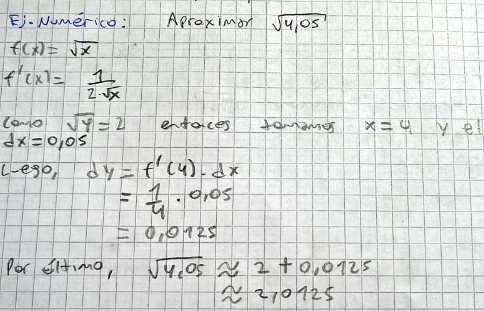 Ej. Numérico: Aproximar √4,05
f(x) = √x
f'(x) = 1/(2·√x)
Como √4 = 2 entonces tomamos x = 4 y el
dx = 0,05
Luego, dy = f'(4) · dx
= 1/4 · 0,05
= 0,0125
Por último, √4,05 ≈ 2 + 0,0125
≈ 2,0125